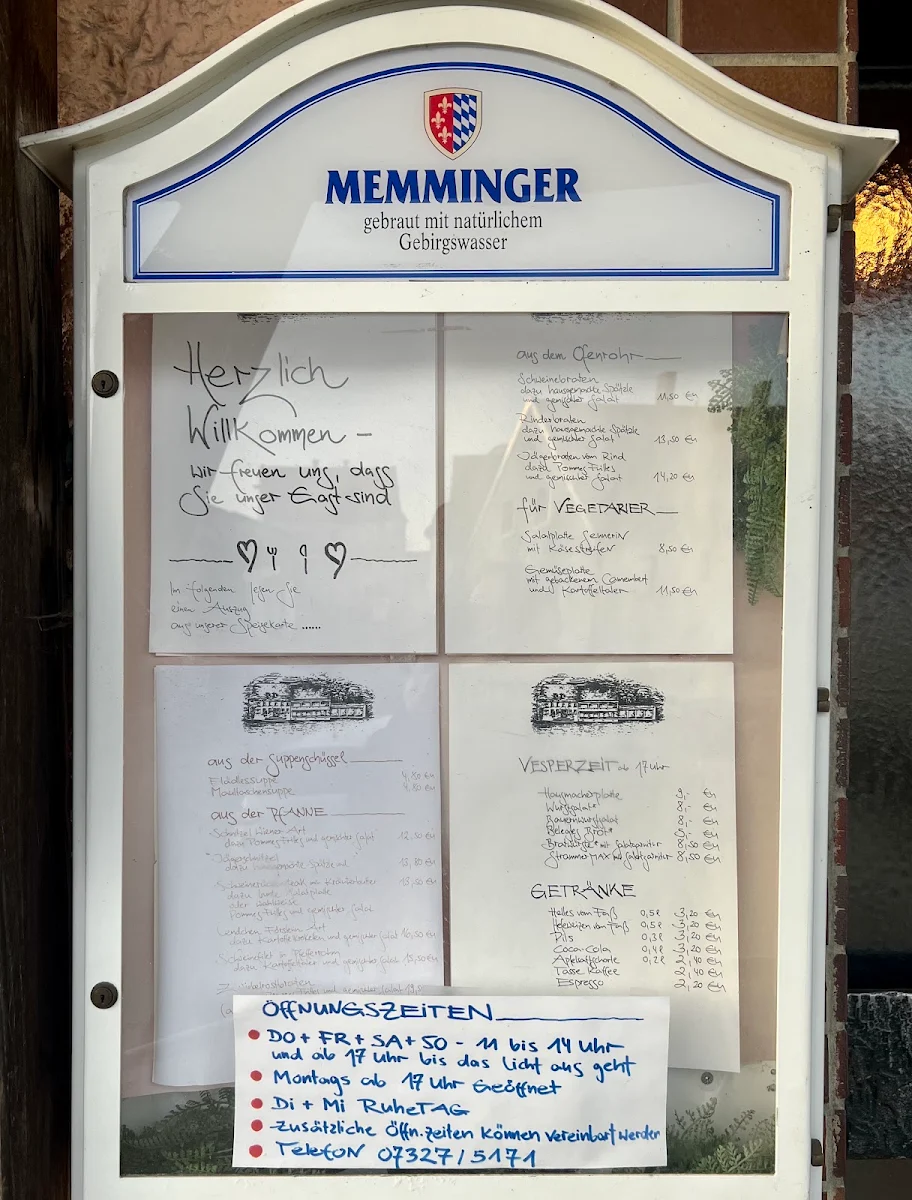 MEMMINGER
gebraut mit natürlichem
Gebirgswasser
Herzlich
Willkommen –
wir freuen uns, dass
Sie unser Gast sind
Im folgenden lesen Sie
einen Auszug
aus unserer Speisekarte ......
aus dem Ofenrohr
Schweinebraten
dazu hausgemachte Spätzle
und gemischter Salat 11,50 €
Rinderbraten
dazu hausgemachte Spätzle
und gemischter Salat 13,50 €
Jägerbraten vom Rind
dazu Pommes Frites
und gemischter Salat 14,20 €
für VEGETARIER
Salatplatte Sennerin
mit Käsestreifen 8,50 €
Gemüseplatte
mit gebackenem Camembert
und Kartoffeltaler 11,50 €
aus der Suppenschüssel
Flädlessuppe 4,80 €
Maultaschensuppe 4,80 €
aus der PFANNE
Schnitzel Wiener Art
dazu Pommes Frites und gemischter Salat 12,50 €
Jägerschnitzel
dazu hausgemachte Spätzle und 13,80 €
Schweinerückensteak mit Kräuterbutter 13,50 €
dazu bunte Salatplatte
oder wahlweise
Pommes Frites und gemischter Salat
Lendchen Försterin Art
dazu Kartoffelkroketten und gemischter Salat 16,50 €
Schweinefilet in Pfefferrahm
dazu und gemischter Salat 15,50 €
Zwiebelrostbraten
und gemischter Salat
VESPERZEIT ab 17 Uhr
Hausmacherplatte 9,- €
Wurstsalat 8,- €
Bauernwurstsalat 8,- €
Belegtes Brot 5,- €
Bratwürste mit Salatgarnitur 8,50 €
Strammer Max mit Salatgarnitur 8,50 €
GETRÄNKE
Helles vom Faß 0,5 l 3,20 €
Hefeweizen vom Faß 0,5 l 3,20 €
Pils 0,3 l 3,20 €
Coca-Cola 0,4 l 3,20 €
Apfelsaftschorle 0,2 l 2,40 €
Tasse Kaffee 2,40 €
Espresso 2,20 €
ÖFFNUNGSZEITEN
DO + FR + SA + SO - 11 bis 14 Uhr
und ab 17 Uhr bis das Licht aus geht
Montags ab 17 Uhr Geöffnet
Di + Mi RuheTAG
Zusätzliche Öffn.zeiten können vereinbart werden
Telefon 07327 / 5171